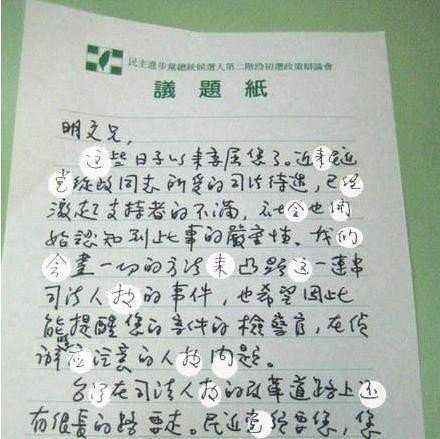 民主進步黨總統候選人第二階段初選政策辯論會
議題紙
明文兄,
這些日子以來委屈您了。近來民進
黨從政同志所受的司法待遇,已經
激起支持者的不滿,社會也開
始認知到此事的嚴重性。我們
會盡一切的方法來凸顯這一連串
司法人權的事件,也希望因此
能提醒您的案件的檢警官,在偵
辦應注意的人權問題。
台灣在司法人權的改革道路上還
有很長的路要走。民進黨從要您,您